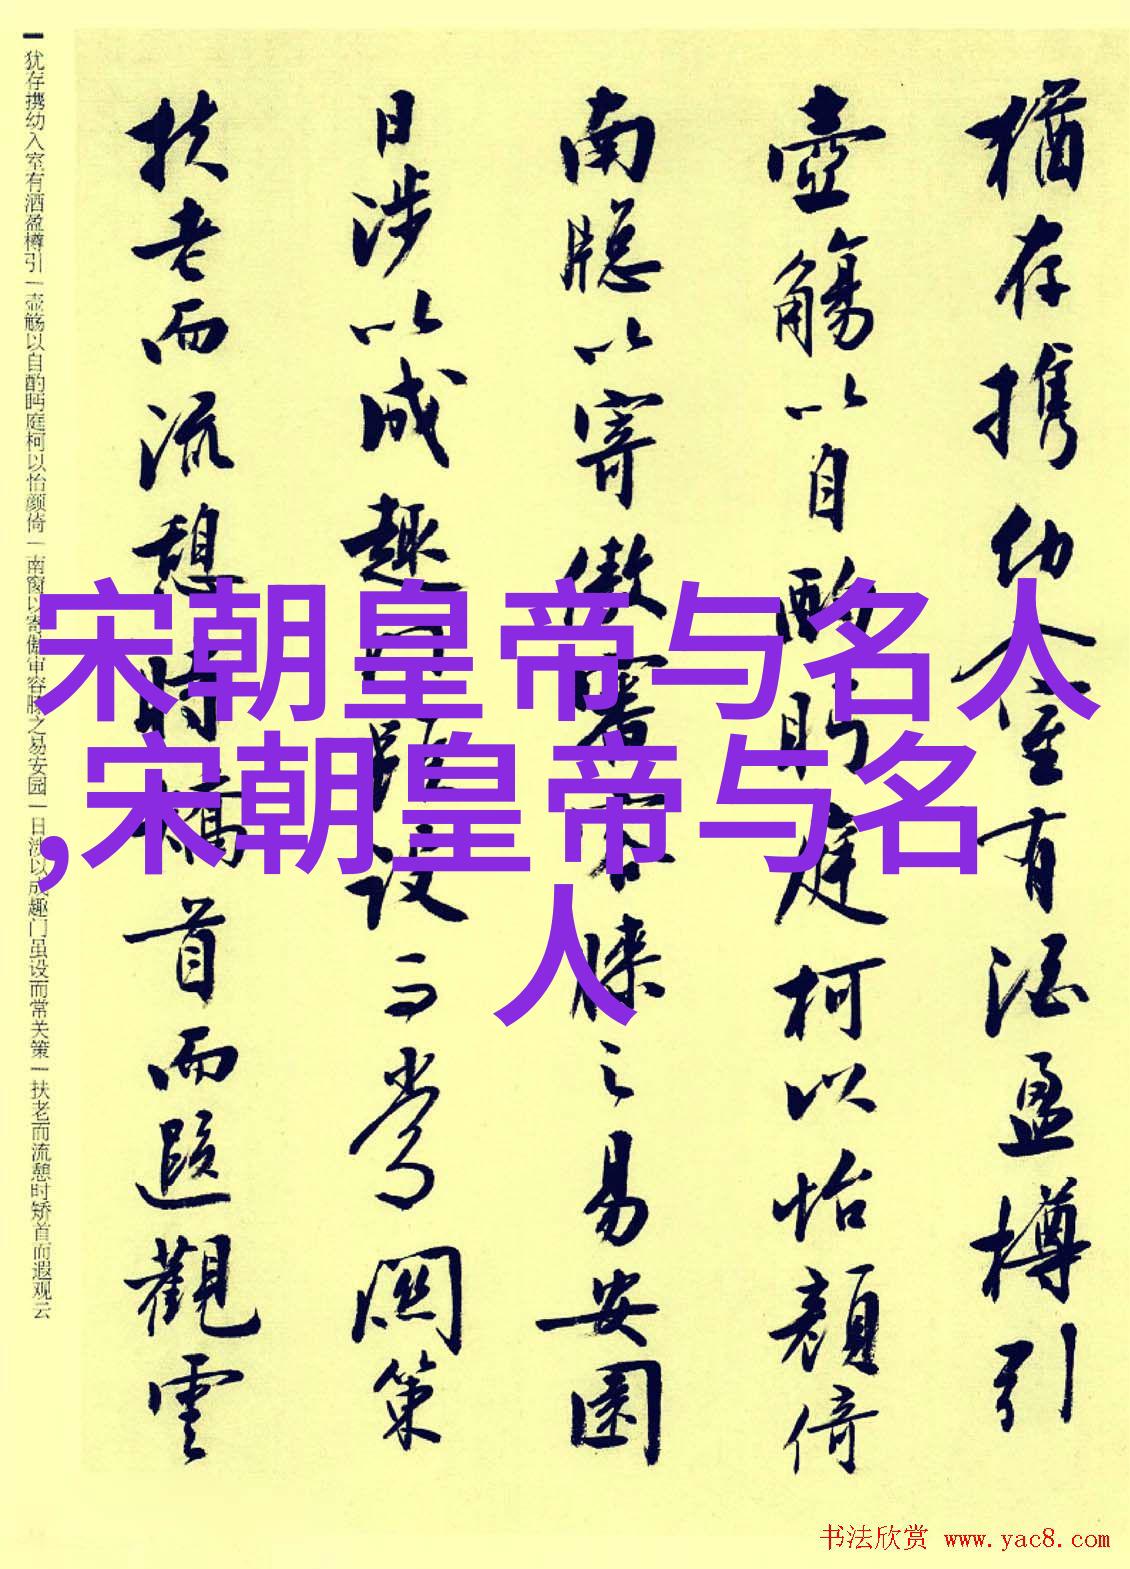 猶存携幼入室有酒盈樽引
壺觴以自酌眄庭柯以怡顔倚
南牕以寄傲審容膝之易安園
日涉以成趣門雖設而常関策
扶老而流憩時矯首而遐觀雲
犹存携幼入室有酒盈樽引一壶觞以自酌眄庭柯以怡颜倚一南窗以寄傲审容膝之易安园一日涉以成趣门虽设而常关策一扶老而流憩时矫首而遐观云
宋朝皇帝与名人
,宋朝皇帝与名
人
书法欣赏 www.yac8.com